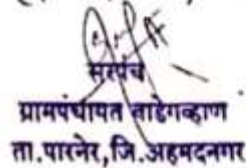 सरपंच
ग्रामपंचायत वाडेगव्हाण
ता.पारनेर,जि.अहमदनगर